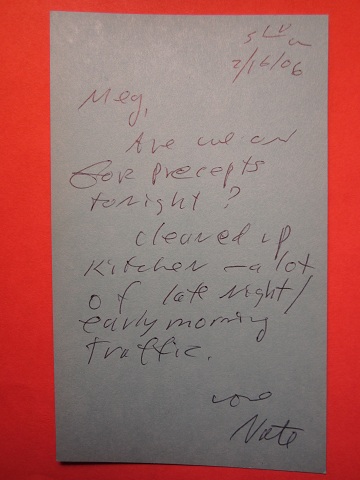 2/16/06
Meg,
Are we on
for precepts
tonight?
Cleaned up
kitchen – a lot
of late night/
early morning
traffic.
love
Nate